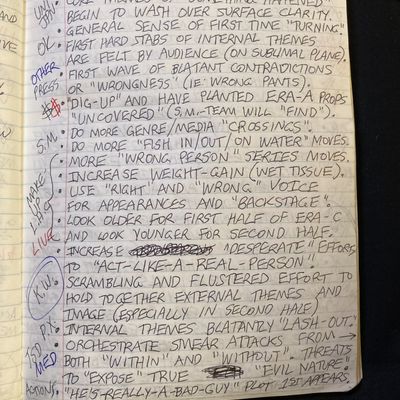 CORE THEMES OF "SOMETHING HAPPENED"
BEGIN TO WASH OVER SURFACE CLARITY.
· GENERAL SENSE OF FIRST TIME "TURNING".
OL · FIRST HARD STABS OF INTERNAL THEMES
ARE FELT BY AUDIENCE (ON SUBLIMAL PLANE).
OTHER PRESS · FIRST WAVE OF BLATANT CONTRADICTIONS
OR "WRONGNESS" (IE: WRONG PANTS).
· "DIG-UP" AND HAVE PLANTED ERA-A PROPS
"UNCOVERED" (S.M.-TEAM WILL "FIND").
S.M. · DO MORE GENRE/MEDIA "CROSSINGS".
· DO MORE "FISH IN/OUT/ON WATER" MOVES.
· MORE "WRONG PERSON" SERIES MOVES.
MAKE-UP · INCREASE WEIGHT-GAIN (WET TISSUE).
· USE "RIGHT" AND "WRONG" VOICE
FOR APPEARANCES AND "BACKSTAGE".
· LOOK OLDER FOR FIRST HALF OF ERA-C
LIVE AND LOOK YOUNGER FOR SECOND HALF.
· INCREASE "DESPERATE" EFFORTS
TO "ACT-LIKE-A-REAL-PERSON".
K.W. · SCRAMBLING AND FLUSTERED EFFORT TO
HOLD TOGETHER EXTERNAL THEMES AND
IMAGE (ESPECIALLY IN SECOND HALF)
P.X. · INTERNAL THEMES BLATANTLY "LASH-OUT."
· ORCHESTRATE SMEAR ATTACKS FROM →
MED BOTH "WITHIN" AND "WITHOUT". THREATS
· TO "EXPOSE" TRUE "EVIL NATURE".
ACTIONS · "HE'S-REALLY-A-BAD-GUY" PLOT 1ST APPEARS.